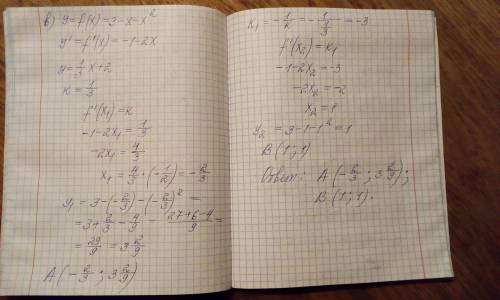 в) y = f(x) = 3-x-x²
y' = f'(x) = -1-2x
y = 1/3 x + 2
k = 1/3
f'(x₁) = k
-1-2x₁ = 1/3
-2x₁ = 4/3
x₁ = 4/3 · (-1/2) = -2/3
y₁ = 3-(-2/3)-(-2/3)² =
= 3+2/3-4/9 = (27+6-4)/9 =
= 29/9 = 3 2/9
A (-2/3 ; 3 2/9)
k₁ = -1/k = -1/(1/3) = -3
f'(x₂) = k₁
-1-2x₂ = -3
-2x₂ = -2
x₂ = 1
y₂ = 3-1-1² = 1
B (1 ; 1)
Ответ: A (-2/3 ; 3 2/9);
B (1; 1).